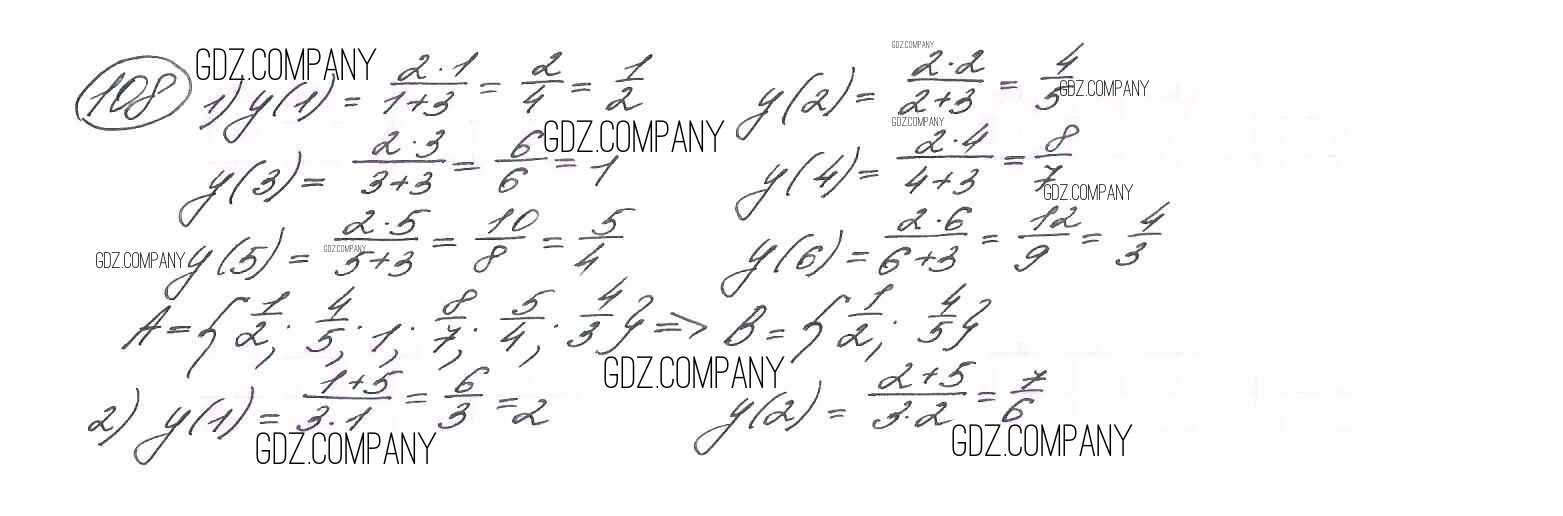 GDZ.COMPANY GDZ.COMPANY
108 1) y(1) = (2·1)/(1+3) = 2/4 = 1/2 y(2) = (2·2)/(2+3) = 4/5 GDZ.COMPANY
GDZ.COMPANY GDZ.COMPANY
y(3) = (2·3)/(3+3) = 6/6 = 1 y(4) = (2·4)/(4+3) = 8/7
GDZ.COMPANY
GDZ.COMPANY y(5) = (2·5)/(5+3) = 10/8 = 5/4 y(6) = (2·6)/(6+3) = 12/9 = 4/3
GDZ.COMPANY
A = {1/2; 4/5; 1; 8/7; 5/4; 4/3} => B = {1/2; 4/5}
GDZ.COMPANY
2) y(1) = (1+5)/(3·1) = 6/3 = 2 y(2) = (2+5)/(3·2) = 7/6
GDZ.COMPANY GDZ.COMPANY